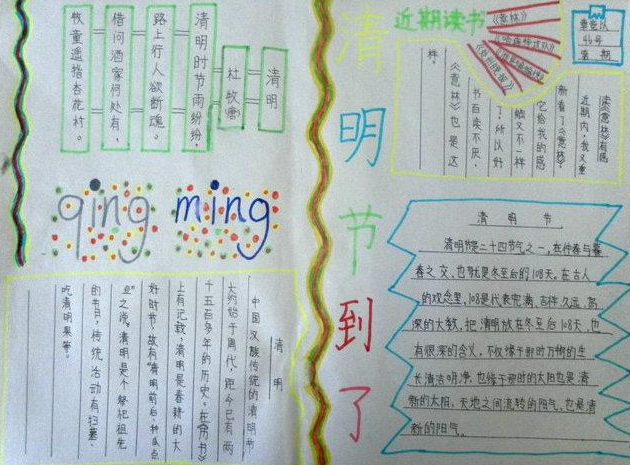 清明
杜牧(唐)
清明时节雨纷纷,
路上行人欲断魂。
借问酒家何处有,
牧童遥指杏花村。
qing ming
清明
中国汉族传统的清明节
大约始于周代,距今已有两
千五百多年的历史,在
上有记载,清明是春耕的大
好时节,故有"清明前后,种瓜点
豆"之说。清明是个祭祀祖先
的节日,传统活动有扫墓、
吃清明果等。
清明节到了
近期读书
《意林》
46号
读《意林》有感
近期内,我又重
新看了《意林》,
它给我的感
触又不一样
了!所以好
书百 不厌,
《意林》也是这
样.
清明节
清明节是二十四节气之一,在仲春与暮
春之交,也就是冬至后的108天。在古人
的观念里,108是代表完满、吉祥、久远、高
深的大数,把清明放在冬至后108天,也
有很深的含义,不仅缘于那时万物的生
长清洁明净,也缘于那时的太阳也是清
新的太阳,天地之间流转的阳气,也是清
新的阳气。